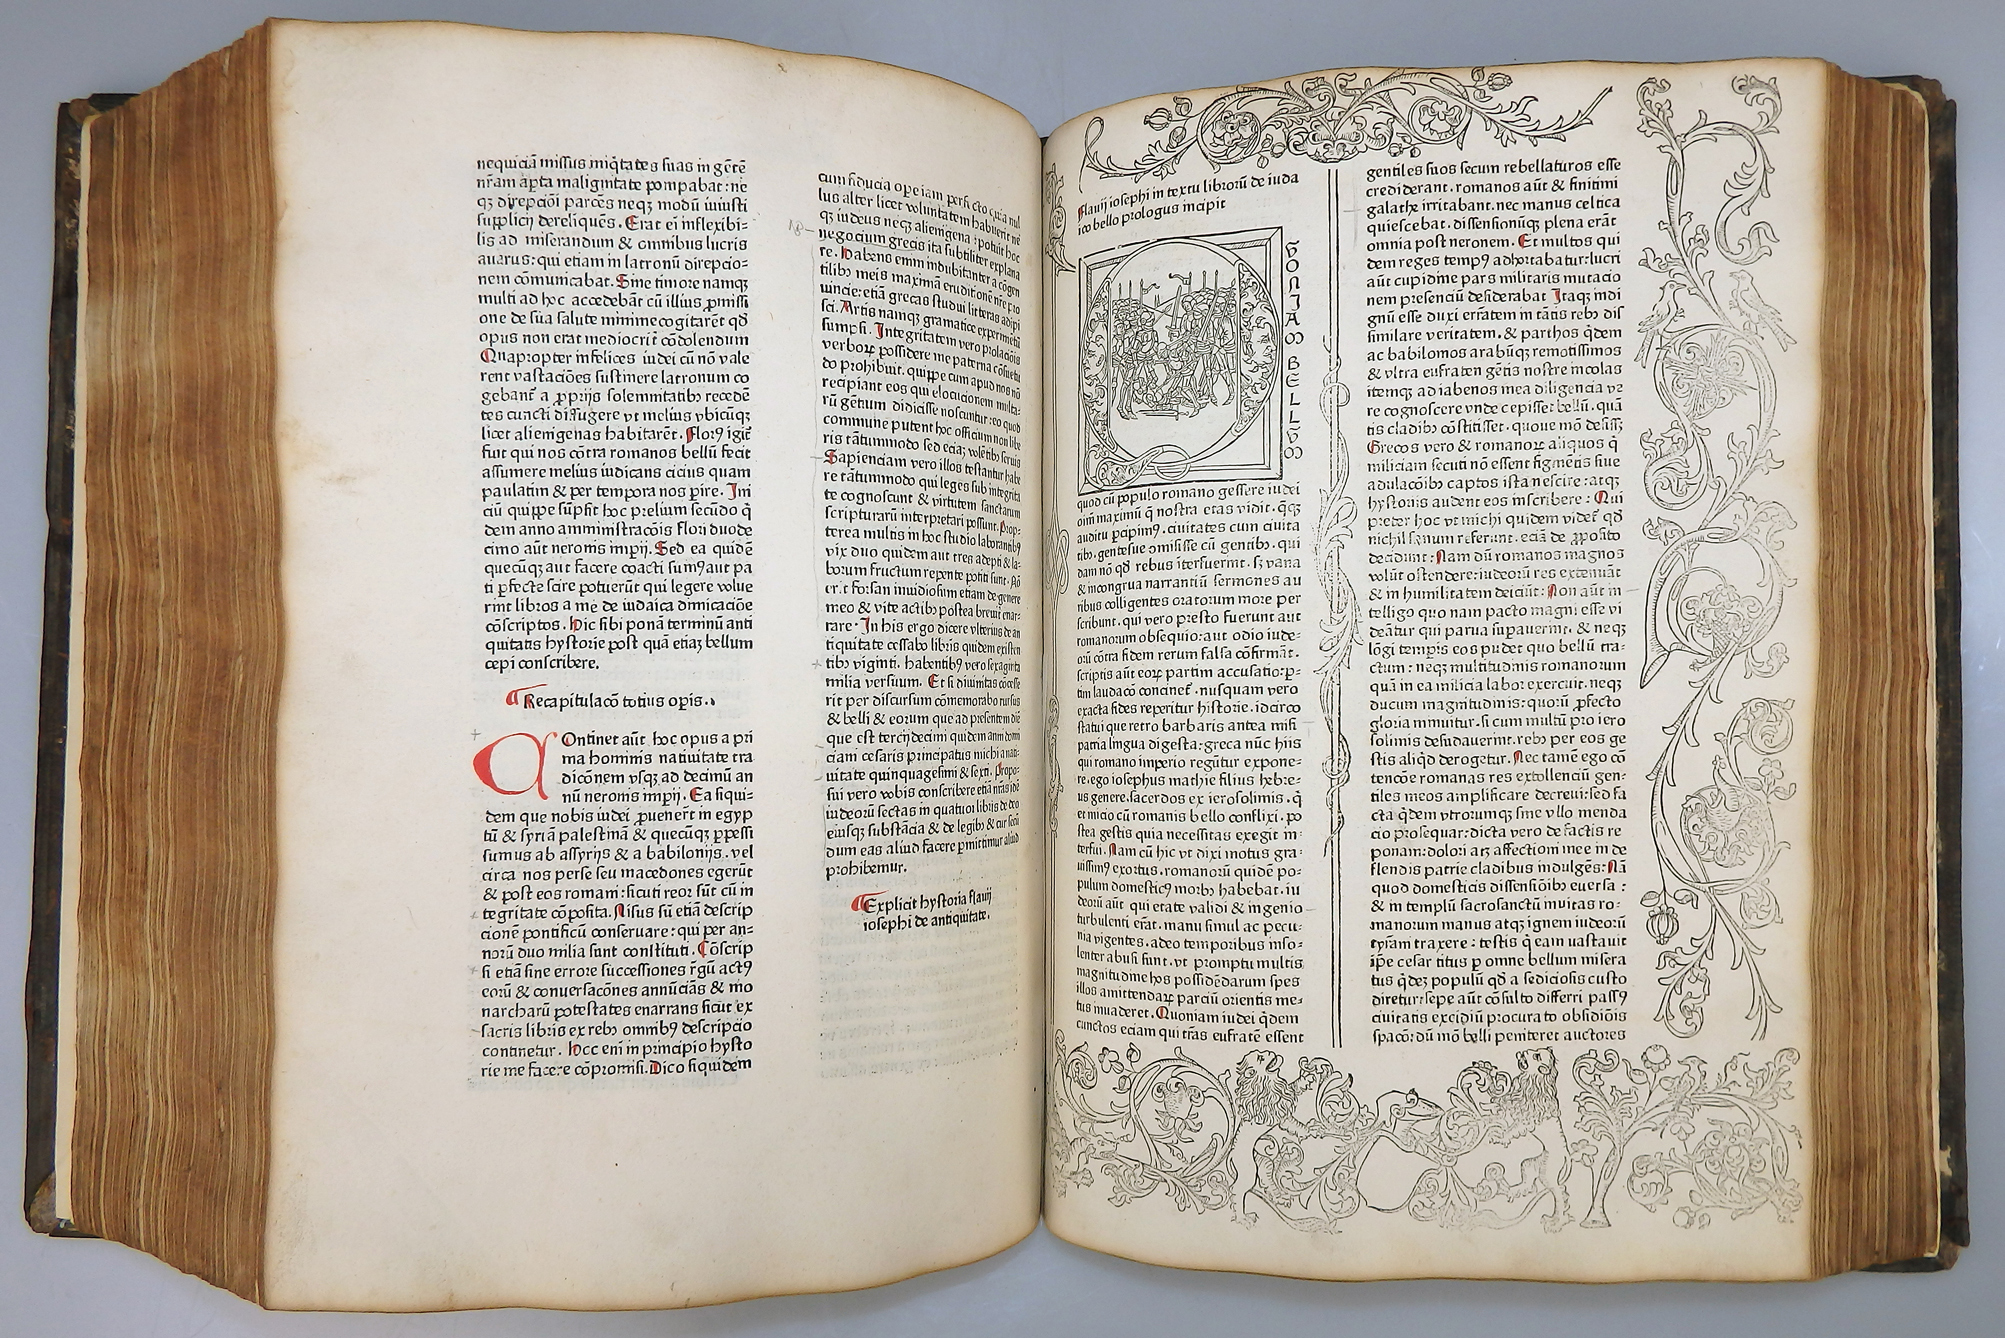 nequiciā missus iniq̄tates suas in gētē
nr̄am ap̄ta malignitate pompabat: ne
qꝫ direpcioī parcēs neqꝫ modū iniusti
supplicij dereliquēs. Erat ei inflexibi⸗
lis ad miserandum & omnibus lucris
auarus: qui etiam in latronū direpcio⸗
nem cōmunicabat. Sine timore namqꝫ
multi ad hoc accedebāt cū illius ꝓmissi
one de sua salute minime cogitarēt qđ
opus non erat mediocrit̄ cōdolendum
Quapropter infelices iudei cū nō vale
rent vastaciōes sustinere latronum co
gebant̄ a ꝓprijs solemnitatibꝫ recedē
tes cuncti diffugere vt melius vbicūqꝫ
licet alienigenas habitarēt. Florꝰ igit̄
fuit qui nos cōtra romanos bellū fecit
assumere melius iudicans cicius quam
paulatim & per tempora nos ꝑire. Ini
ciū quippe sūpsit hoc prelium secūdo q̄
dem anno amministracōis flori duode
cimo aūt neronis imꝑij. Sed ea quidē
quecūqꝫ aut facere coacti sumꝰ aut pa
ti ꝑfecte scire potuerūt qui legere volue
rint libros a me de iudaica dimicaciōe
cōscriptos. Hic sibi ponā terminū anti
quitatis hystorie post quā etiaꝫ bellum
cepi conscribere.
Recapitulacō totius oꝑis.
COntinet aūt hoc opus a pri
ma hominis natiuitate tra
dicōnem vsqꝫ ad decimū an
nū neronis imꝑij. Ea siqui⸗
dem que nobis iudei ꝓuenerūt in egyp
tū & syriā palestinā & quecūqꝫ ꝑpessi
sumus ab assyrijs & a babilonijs. vel
circa nos perse seu macedones egerūt
& post eos romani: sicuti reor sūt cū in
tegritate cōposita. Nisus sū etiā descrip
cionē pontificū conseruare: qui per an⸗
norū duo milia sunt constituti. Cōscrip
si etiā sine errore successiones r̄gū actꝰ
eorū & conuersacōnes annūciās & mo
narcharū potestates enarrans sicut ex
sacris libris ex rebꝫ omnibꝰ descripcio
continetur. Hoc eni in principio hysto
rie me facere cōpromisi. Dico siquidem
cum fiducia ope iam perfecto quia nul
lus alter licet voluntatem habuerit ne
qꝫ iudeus neqꝫ alienigena: potuit hoc
negocium grecis ita subtiliter explana
re. Habens enim indubitanter a cōgen
tilibꝫ meis maximā eruditionē nr̄e pro
uincie: etiā grecas studui litteras adipi
sci. Artis namqꝫ gramatice experimētū
sumpsi. Integritatem vero prolaciōis
verboꝝ possidere me paterna cōsuetu
do prohibuit. quippe cum apud nos nō
recipiant eos qui elocucionem multa⸗
rū gentium didicisse noscuntur: eo quod
commune putent hoc officium non libe
ris tātummodo sed eciaꝫ volētibꝫ seruis
Sapienciam vero illos testantur habe
re tātummodo qui leges sub integrita
te cognoscunt & virtutem sanctarum
scripturarū interpretari possunt. Prop⸗
terea multis in hoc studio laborantibꝰ
vix duo quidem aut tres adepti & la⸗
borum fructum repente potiti sunt. Nō
erit forsan inuidiosum etiam de genere
meo & vite actibꝫ postea breuit̄ enar⸗
rare. In his ergo dicere vlterius de an
tiquitate cessabo libris quidem existen
tibꝫ viginti. habentibꝰ vero sexaginta
milia versuum. Et si diuinitas cōcesse
rit per discursum cōmemorabo rursus
& belli & eorum que ad presentem diē
que est tercijdecimi quidem anni domi
ciani cesaris principatus michi a nati⸗
uitate quinquagesimi & sexti. Propo⸗
sui vero vobis conscribere etiā nr̄as idē
iudeorū sectas in quatuor libris de deo
eiusqꝫ substācia & de legibꝫ & cur secū
dum eas aliud facere ꝑmittimur aliud
prohibemur.
Explicit hystoria flauij
iosephi de antiquitate.
Flauij iosephi in textu librorū de iuda
ico bello prologus incipit
QVONIAM BELLVM
quod cū populo romano gessere iudei
oīm maximū q̄ nostra etas vidit. q̄qꝫ
auditu ꝑcipimꝰ. ciuitates cum ciuita
tibꝫ. gentesue ōmisisse cū gentibꝫ. qui
dam nō qđ rebus īterfuerint. sꝫ vana
& incongrua narrantiū sermones au
ribus colligentes oratorum more per
scribunt. qui vero presto fuerunt aut
romanorum obsequio: aut odio iude⸗
orū cōtra fidem rerum falsa cōfirmāt.
scriptis aūt eoꝝ partim accusatio: ꝑ⸗
tim laudacō concinet̄. nusquam vero
exacta fides reperitur historie. idcirco
statui que retro barbaris antea misi
patria lingua digesta: greca nūc hiis
qui romano imperio regūtur expone⸗
re. ego iosephus mathie filius hebre⸗
us genere. sacerdos ex ierosolimis. q̄
et inicio cū romanis bello conflixi. po
stea gestis quia necessitas exegit in⸗
terfui. Nam cū hic vt dixi motus gra⸗
uissimꝰ exortus. romanorū quidē po⸗
pulum domesticꝰ morbꝫ habebat. iu
deorū aūt qui etate validi & ingenio
turbulenti erāt. manu simul ac pecu⸗
nia vigentes. adeo temporibus inso⸗
lenter abusi sunt. vt promptu multis
magnitudine hos possidēdarum spes
illos amittendaꝝ parciū orientis me⸗
tus inuaderet. Quoniam iudei q̄dem
cunctos eciam qui trās eufratē essent
gentiles suos secum rebellaturos esse
crediderant. romanos aūt & finitimi
galathe irritabant. nec manus celtica
quiescebat. dissensionūqꝫ plena erāt
omnia post neronem. Et multos qui
dem reges tempꝰ adhortabatur: lucri
aūt cupidine pars militaris mutacio
nem presenciū desiderabat Itaqꝫ indi
gnū esse duxi errātem in tātis rebꝫ dis
similare veritatem. & parthos q̄dem
ac babilonios arabūqꝫ remotissimos
& vltra eufraten gētis nostre incolas
itemqꝫ adiabenos mea diligencia ve
re cognoscere vnde cepisset bellū. quā
tis cladibꝫ cōstitisset. quoue mō desiss̄
Grecos vero & romanoꝝ aliquos q̄
miliciam secuti nō essent figmētis siue
adulacōibꝫ captos ista nescire: atqꝫ
hystoriis audent eos inscribere: Qui
preter hoc vt michi quidem videt̄ qđ
nichil sanum referunt. eciā de ꝓposito
decidunt: Nam dū romanos magnos
volūt ostendere: iudeorū res extenuāt
& in humilitatem deiciūt: Non aūt in
telligo quo nam pacto magni esse vi
deātur qui parua suꝑauerint. & neqꝫ
lōgi temꝑis eos pudet quo bellū tra⸗
ctum: neqꝫ multitudinis romanorum
quā in ea milicia labor exercuit. neqꝫ
ducum magnitudinis: quorū ꝓfecto
gloria minuitur. si cum multū pro iero
solimis desudauerint. rebꝫ per eos ge
stis aliqđ derogetur. Nec tamē ego cō
tencōe romanas res extollenciū gen⸗
tiles meos amplificare decreui: sed fa
cta q̄dem vtrorumqꝫ sine vllo menda
cio prosequar: dicta vero de factis re
ponam: dolori atꝫ affectioni mee in de
flendis patrie cladibus indulgēs: Nā
quod domesticis dissensiōibꝫ euersa:
& in templū sacrosanctū inuitas ro⸗
manorum manus atqꝫ ignem iudeorū
tyrāni traxere: testis q̄ eam vastauit
ip̄e cesar titus ꝑ omne bellum misera
tus q̄deꝫ populū qđ a sediciosis custo
diretur: sepe aūt cōsulto differri passꝰ
ciuitatis excidiū procurato obsidiōis
spacō: dū mō belli peniteret auctores